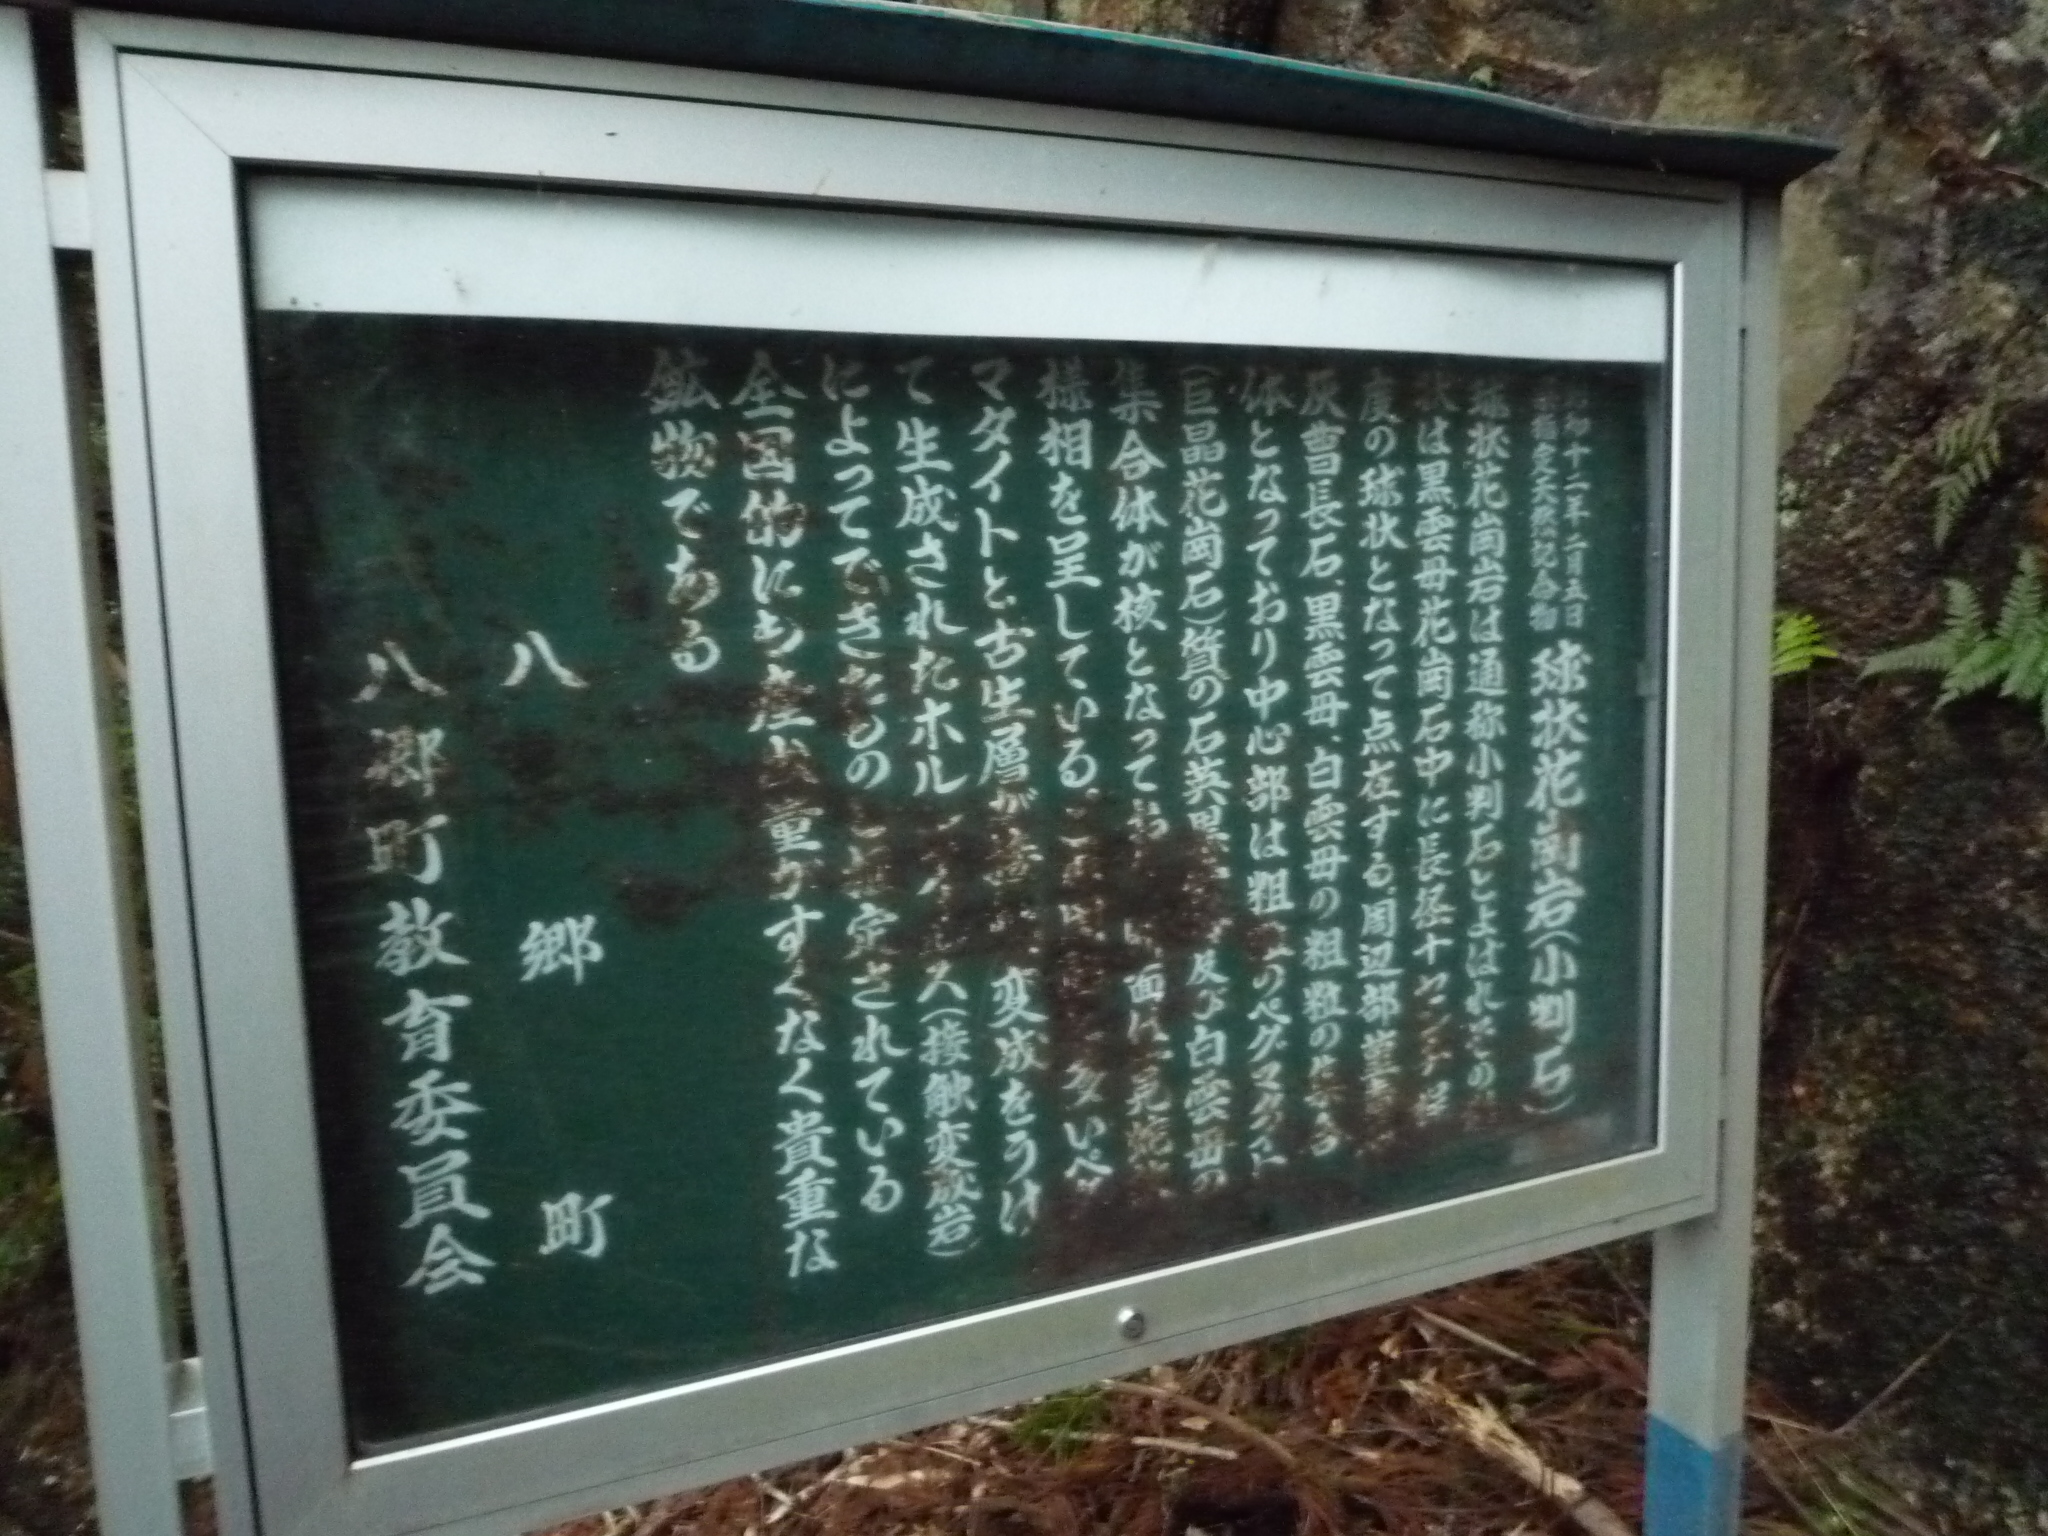 和十二年二月五日
指定天然記念物
球状花崗岩(小判石)
球状花崗岩は通称小判石とよばれこの
は黒雲母花崗石中に長径十センチ程
度の球状となって点在する、周辺部
灰曹長石、黒雲母、白雲母の粗粒の
体となっており中心部は粗のペグマタイト
(巨晶花崗石)質の石英黒及び白雲母の
集合体が核となって面は
様相を呈している、多いペ
マタイトと古生層が変成をうけ
て生成されたホルス(接触変成岩)
によってできたものと推定されている
全国的にも産出量がすくなく貴重な
鉱物である
八郷町
八郷町教育委員会